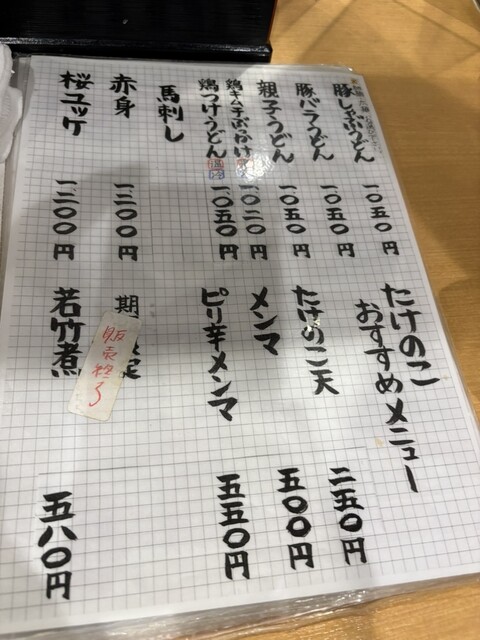 豚しゃぶうどん 一〇五〇円
豚バラうどん 一〇五〇円
親子うどん 一〇五〇円
鶏キムチぶっかけ 一〇二〇円
鶏つけうどん 温 冷 一〇五〇円
馬刺し
赤身 一二〇〇円
桜ユッケ 一二〇〇円
たけのこ
おすすめメニュー
たけのこ天 二五〇円
メンマ 五〇〇円
ピリ辛メンマ 五五〇円
期
販売終了
若竹煮 五八〇円